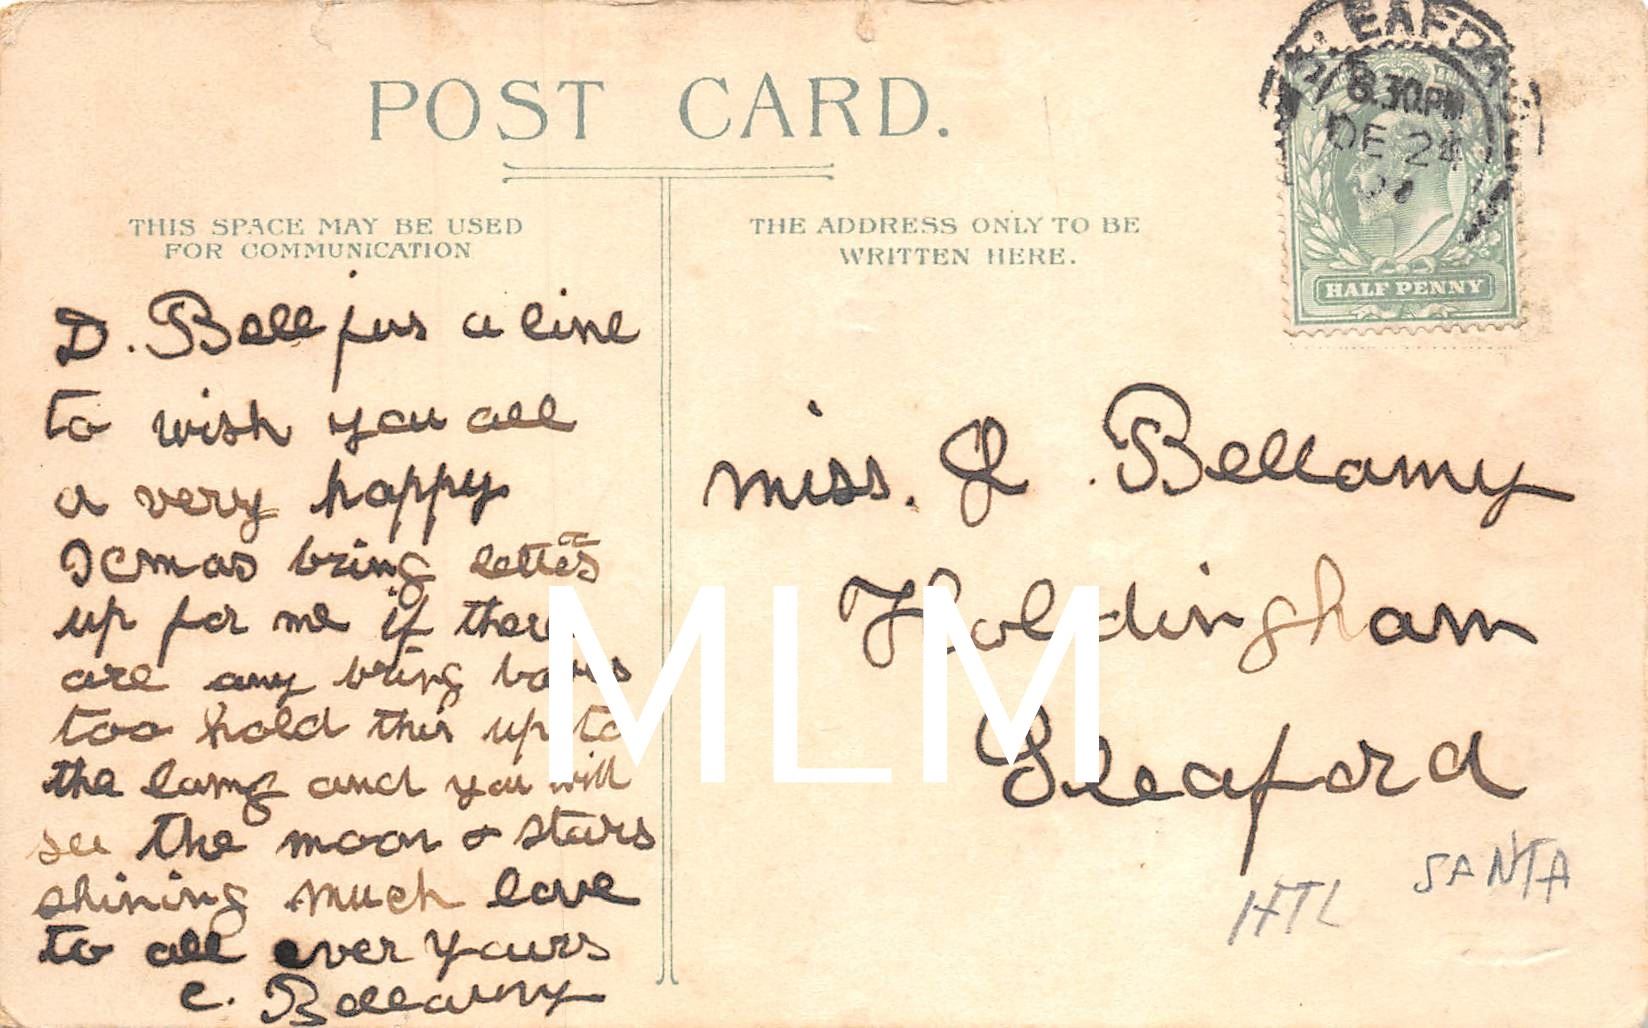 POST CARD.
THIS SPACE MAY BE USED
FOR COMMUNICATION
THE ADDRESS ONLY TO BE
WRITTEN HERE.
SLEAFORD
8.30PM
DE 24
07
HALF PENNY
D. Bell jus a line
to wish you all
a very happy
Xmas bring letters
up for me if there
are any bring
too hold this up to
the lamp and you will
see the moon & stars
shining much love
to all ever yours
C. Bellamy
Miss. J. Bellamy
Holdingham
Sleaford
HTL SANTA
MLM